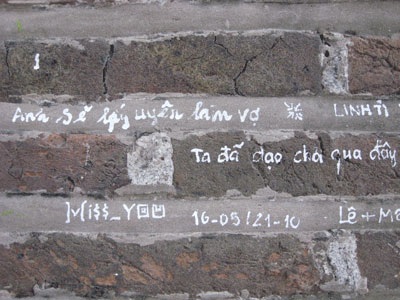 Anh sẽ lấy uyên làm vợ LINHTI
Ta đã dạo chơi qua đây
M($$_YOU 16-05/21-10 Lê + Mê